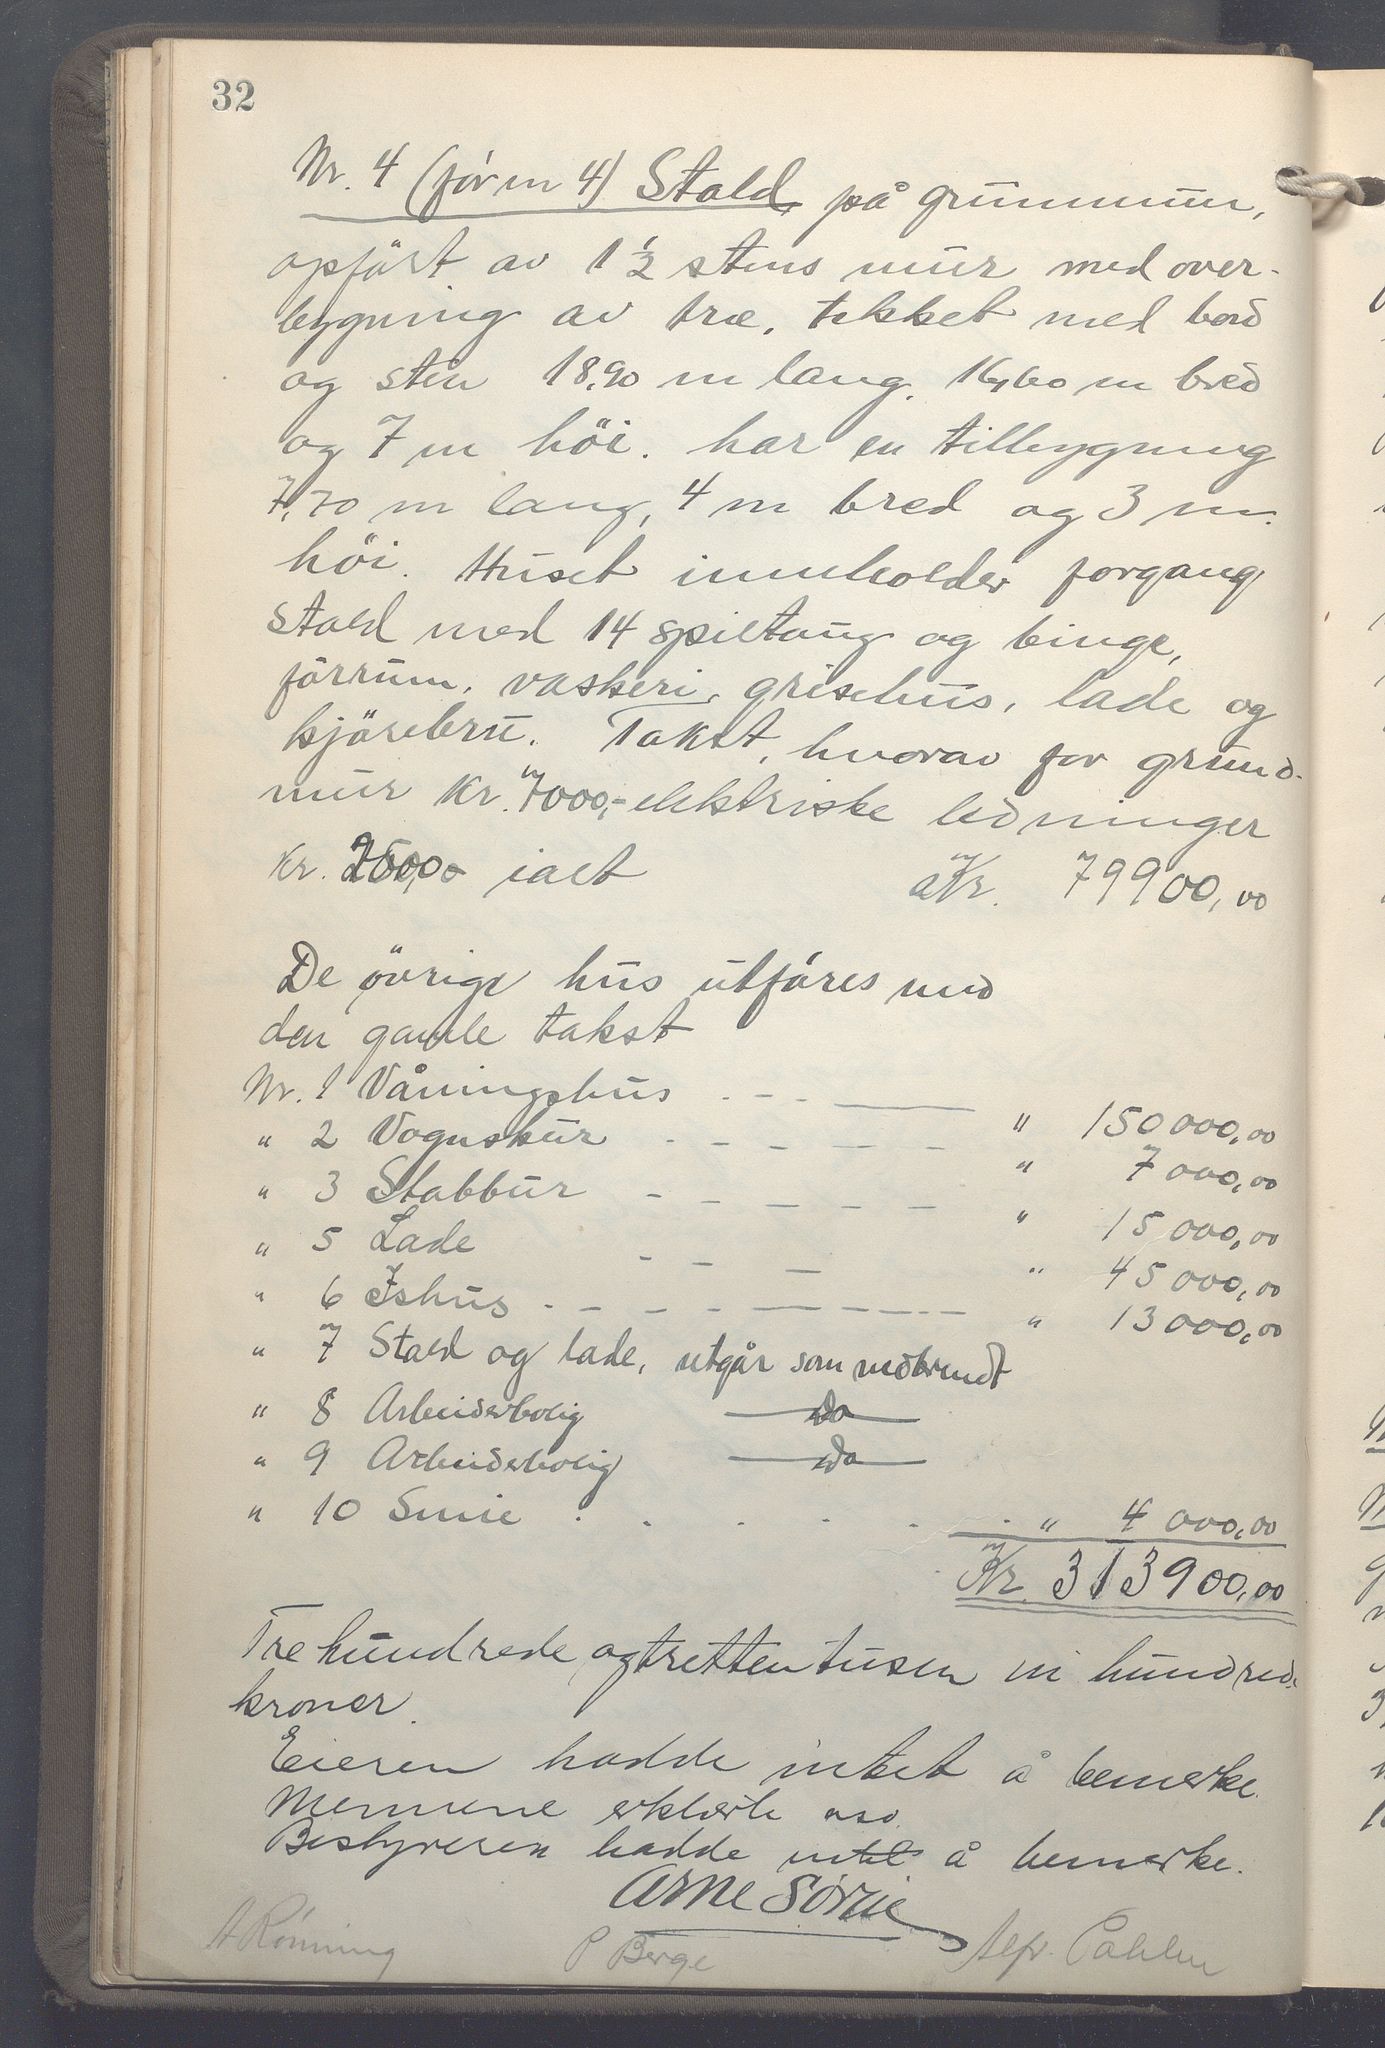 32
Nr. 4 (før nr 4) Stald, på grunmur,
opført av 1 1/2 stens mur med over-
bygning av træ, tekket med bord
og sten 18,90 m lang, 16,60 m bred
og 7 m höi. har en tilbygning
7,70 m lang, 4 m bred og 3 m.
höi. Huset inneholder forgang
stald med 14 spiltaug og binge,
fôrrum, vaskeri, grisehus, lade og
kjörebru. Takst, hvorav for grund-
mur Kr. 7000,- elektriske ledninger
Kr. ialt Kr. 79900,00
De övrige hus utføres med
den gamle takst
Nr. 1 Våningshus " 150 000,00
" 2 Vognskur " 7 000,00
" 3 Stabbur " 15 000,00
" 5 Lade " 45 000,00
" 6 Ishus " 13 000,00
" 7 Stald og lade, utgår som nedbrendt
" 8 Arbeiderbolig — do —
" 9 Arbeiderbolig — do —
" 10 Smie . . . . . . " 4 000,00
Kr. 313 900,00
Tre hundrede og tretten tusen ni hundred
kroner.
Eieren hadde intet å bemerke.
Mennene erklærte osv.
Bestyreren hadde intet å bemerke.
Arne
A Rønning P Berge Alfr.